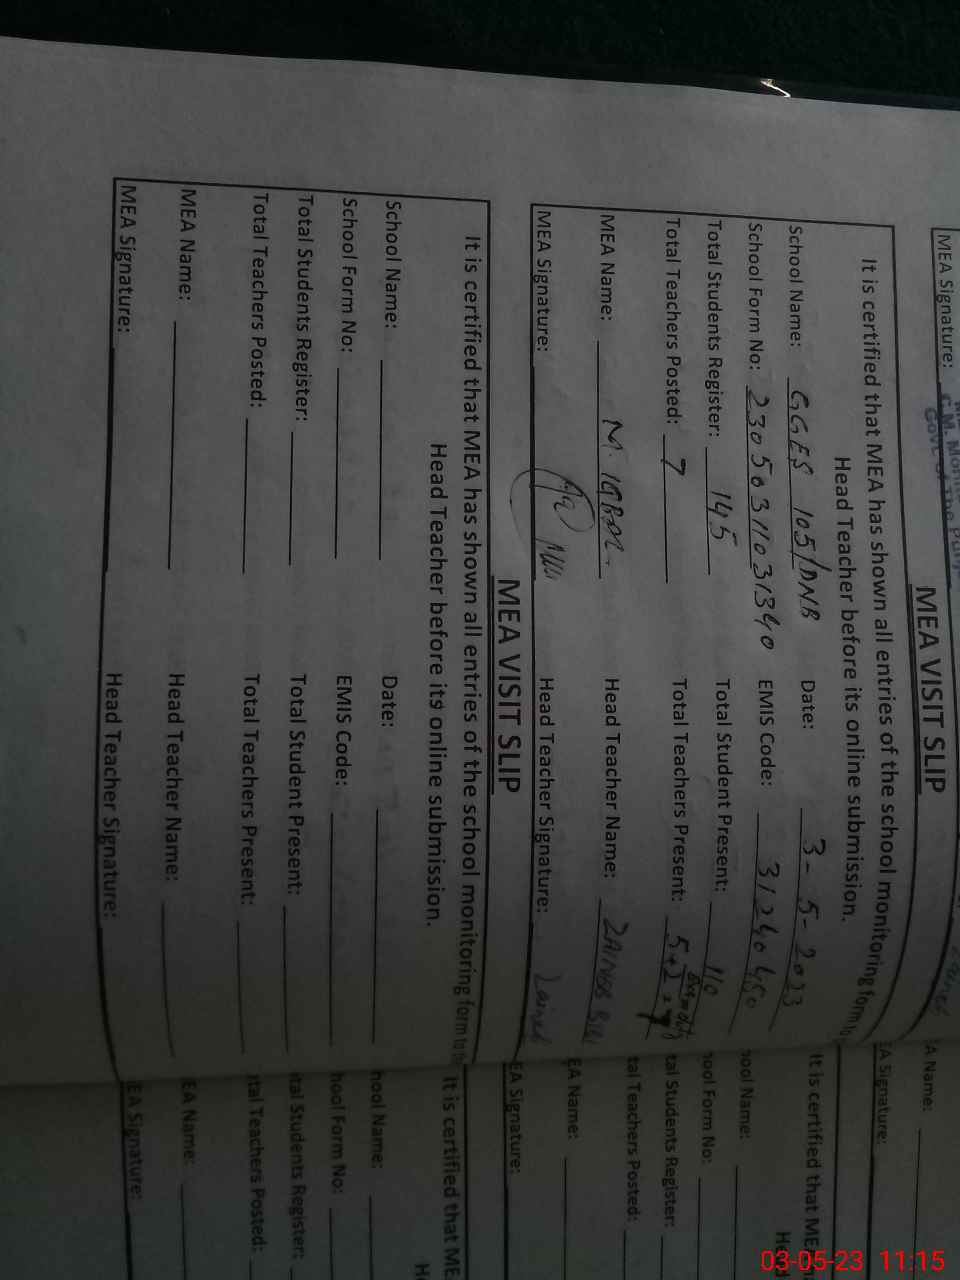 MEA Signature:
MEA VISIT SLIP
It is certified that MEA has shown all entries of the school monitoring form to
Head Teacher before its online submission.
School Name: GGES 105/DNB Date: 3-5-2023
School Form No: 23050311031340 EMIS Code: 31240450
Total Students Register: 145 Total Student Present: 110
Total Teachers Posted: 7 Total Teachers Present: 5+2=7
MEA Name: M. IQBAL Head Teacher Name: ZAINAB BIBI
MEA Signature: Head Teacher Signature: Zainab
MEA VISIT SLIP
It is certified that MEA has shown all entries of the school monitoring form to the
Head Teacher before its online submission.
School Name: Date:
School Form No: EMIS Code:
Total Students Register: Total Student Present:
Total Teachers Posted: Total Teachers Present:
MEA Name: Head Teacher Name:
MEA Signature: Head Teacher Signature:
A Name:
EA Signature:
It is certified that ME
ool Name:
ool Form No:
tal Students Register:
tal Teachers Posted:
EA Name:
EA Signature:
It is certified that ME
hool Name:
hool Form No:
tal Students Register:
tal Teachers Posted:
EA Name:
EA Signature:
03-05-23 11:15